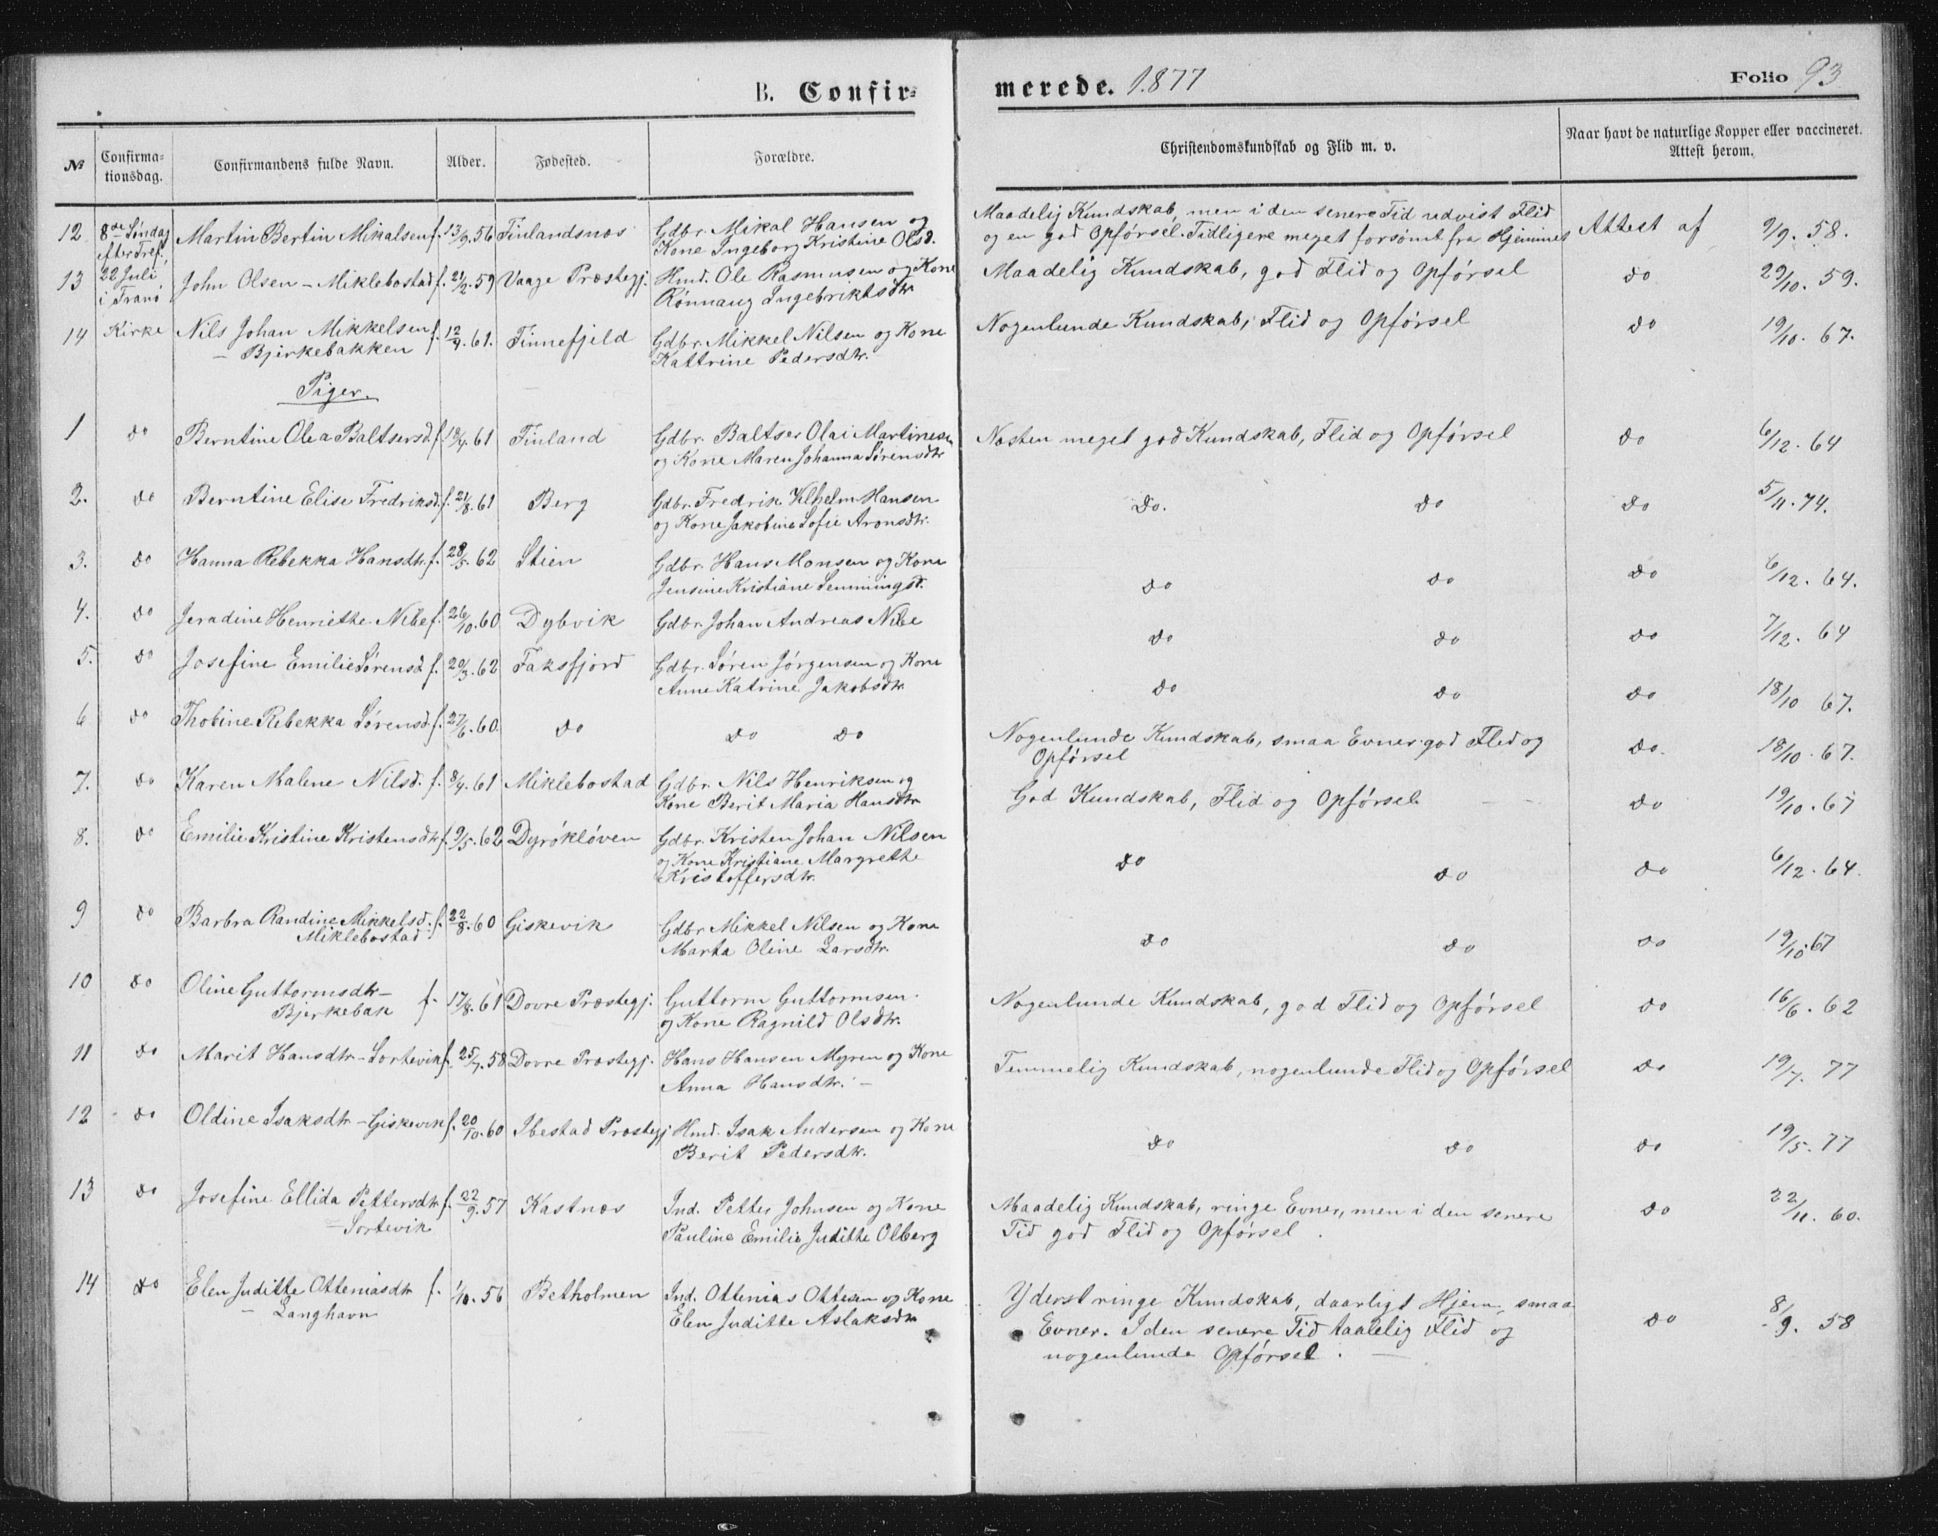 B. Confirmerede. 1877
Folio 93
№ Confirmationsdag. Confirmandens fulde Navn. Alder. Fødested. Forældre. Christendomskundskab og Flid m. v. Naar havt de naturlige Kopper eller vaccineret. Attest herom.
12 8de Søndag efter Tref. Martin Bertin Mikalsen f. 13/9. 56 Finlandsnæs Gdbr. Mikal Hansen og Maadelig Kundskab, men i den senere Tid udvist Flid Attest af 9/9. 58.
Kone Ingeborg Kristine Olsd. og en god Opførsel. Tidligere meget forsømt fra Hjemmet
13 22 Juli i Tranø John Olsen - Miklebostad f. 21/2. 59 Vaage Præstegj. Hmd. Ole Rasmusen og Kone Maadelig Kundskab, god Flid og Opførsel do 29/10. 59.
Rønnaug Ingebriktsdtr
14 Kirke Nils Johan Mikkelsen f. 12/4. 61. Finnefjeld Gdbr. Mikkel Nilsen og Kone Nogenlunde Kundskab, Flid og Opførsel do 19/10. 67.
- Bjirkebakken Kattrine Pedersdtr.
Piger.
1 do Berntine Olea Baltsersd. f. 18/4. 61 Finland Gdbr. Baltser Olai Martinesen Næsten meget god Kundskab, Flid og Opførsel do 6/12. 64
og Kone Maren Johanna Sørensdtr
2. do Berntine Elise Fredriksd. f. 21/8. 61 Berg Gdbr. Fredrik Vilhelm Hansen Do. do do 5/11. 74.
og Kone Jakobine Sofie Aronsdtr.
3. do Hanna Rebekka Hansdtr. f. 28/5. 62 Stien Gdbr. Hans Monsen og Kone do do do 6/12. 64.
Jensine Kristiane Semmingsd.
4. do Jeradine Henriethe Nibe f. 26/10. 60 Dybvik Gdbr. Johan Andreas Nibe do do do 7/12. 64
5. do Josefine Emilie Sørensd. f. 20/3. 62 Faksfjord Gdbr. Søren Jørgensen og Kone do do do 18/10 67.
Anne Katrine Jakobsdtr.
6 do Thobine Rebekka Sørensd. f. 27/6. 60. do do do Nogenlunde Kundskab, smaa Evner. god Flid og do. 18/10. 67.
Opførsel
7. do Karen Malene Nilsd. f. 8/4. 61 Miklebostad Gdbr. Nils Henriksen og God Kundskab, Flid og Opførsel do 19/10. 67
Kone Berit Maria Hansdtr
8. do Emilie Kristine Kristensdtr f. 9/5. 62 Dyrøkløven Gdbr. Kristen Johan Nilsen do do do 6/12. 64.
og Kone Kristiane Margrethe
Kristoffersdtr.
9 do Barbra Randine Mikkelsd. f. 22/8. 60 Giskevik Gdbr. Mikkel Nilsen og Kone do do do 19/10 67
Miklebostad Marta Oline Larsdtr.
10 do Oline Guttormsdtr- f. 17/8. 61 Dovre Præstegj. Guttorm Guttormsen Nogenlunde Kundskab, god Flid og Opførsel do 16/6. 62
Bjerkebak og Kone Ragnild Olsdtr.
11 do Marit Hansdtr - Sortevik f. 25/7. 58 Dovre Præstegj. Hans Hansen Myren og Kone Temmelig Kundskab, nogenlunde Flid og Opførsel do 19/7. 77
Anna Hansdtr. -
12 do Oldine Isaksdtr - Giskevik f. 20/10. 60 Ibestad Præstegj Hmd. Isak Andersen og Kone do do do 19/5. 77
Berit Pedersdtr.
13 do Josefine Ellida Pettersdtr f. 22/9. 57 Kastnæs Ind. Petter Johnsen og Kone Maadelig Kundskab, ringe Evner, men i den senere do 22/11. 60.
- Sortevik Pauline Emilie Juditte Olberg Tid god Flid og Opførsel.
14 do Elen Juditte Otteniasdtr f. 1/10. 56 Betholmen Ind. Ottenias Ottesen og Kone Yderst ringe Kundskab, daarligt Hjem, smaa do 8/9. 58
- Langhavn Elen Juditte Aslaksdtr Evner. I den senere Tid taalelig Flid og
nogenlunde Opførsel. -